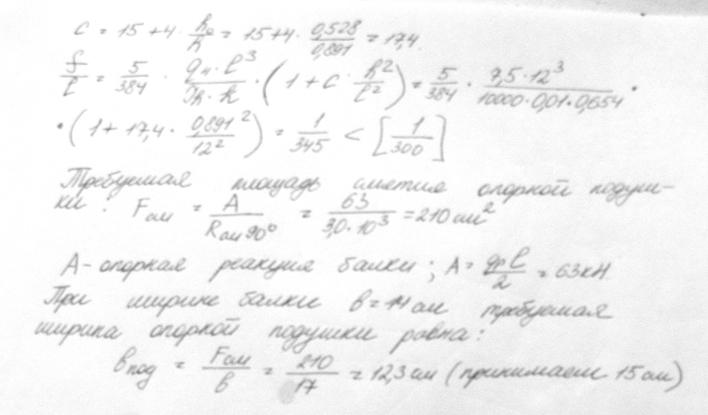 c = 15 + 4 · h₀/h = 15 + 4 · 0,528/0,891 = 17,4
f/l = 5/384 · qн · l³/Jh · k · (1 + c · h²/l²) = 5/384 · 7,5 · 12³/10000 · 0,01 · 0,654 ·
· (1 + 17,4 · 0,891²/12²) = 1/345 < [1/300]
Требуемая площадь смятия опорной подуш-
ки: Fсм = A/Rсм 90° = 63/3,0 · 10³ = 210 см²
A – опорная реакция балки; A = qp l/2 = 63 кН
При ширине балки b = 14 см требуемая
ширина опорной подушки равна:
bпод = Fсм/b = 210/17 = 12,3 см (принимаем 15 см)